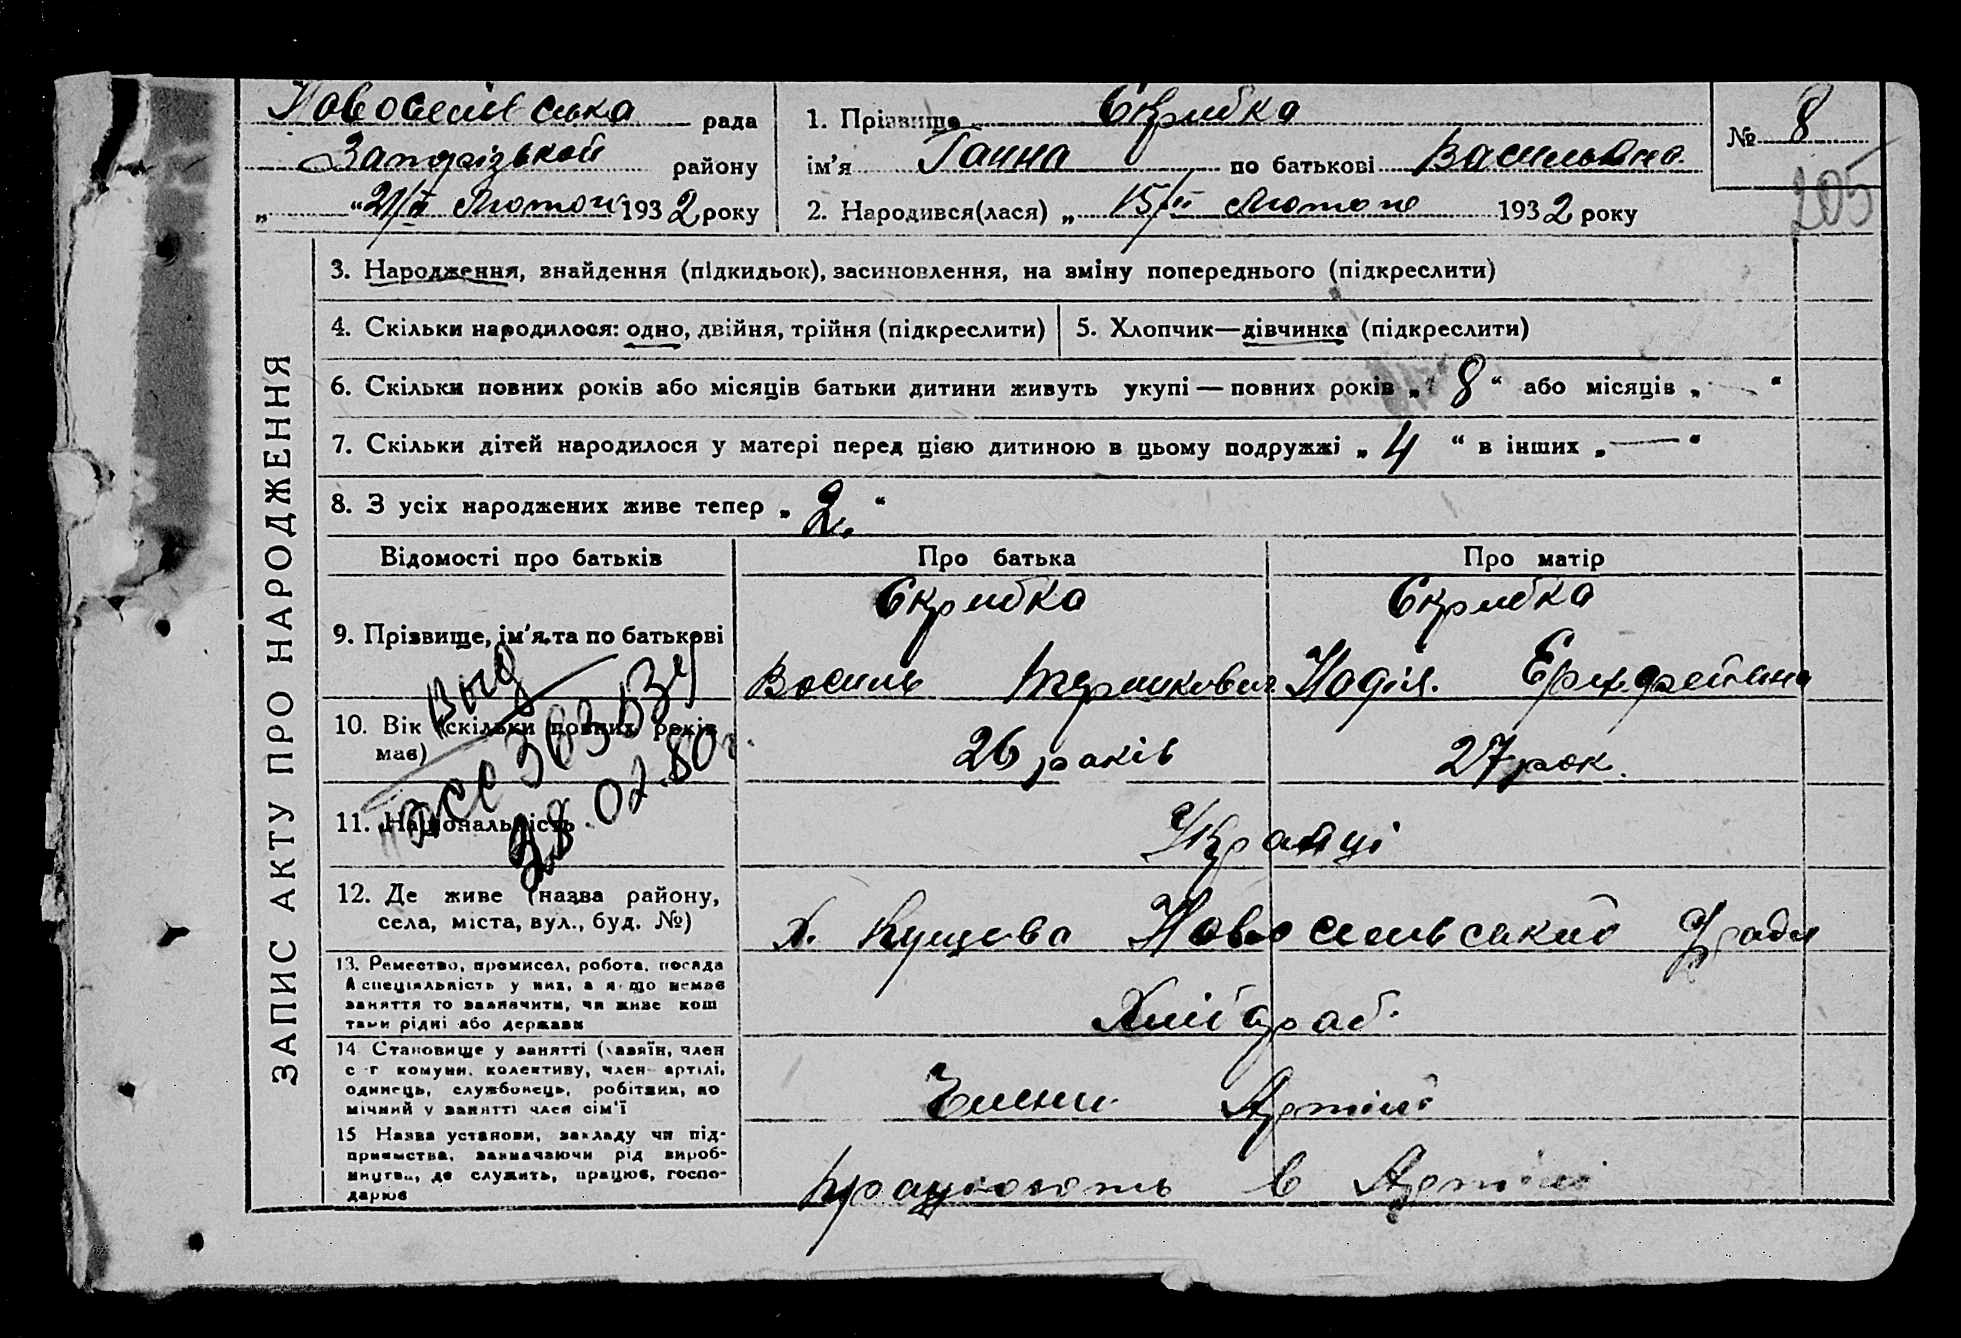 Новоселівська рада
Запорізькой району
„ “ 21/II Лютого 1932 року
1. Прізвище Скрибка
ім’я Ганна по батькові Васильовна
2. Народився(лася) „ 15/II Лютого 1932 року
№ 8
205
ЗАПИС АКТУ ПРО НАРОДЖЕННЯ
3. Народження, знайдення (підкидьок), засиновлення, на зміну попереднього (підкреслити)
4. Скільки народилося: одно, двійня, трійня (підкреслити)
5. Хлопчик—дівчинка (підкреслити)
6. Скільки повних років або місяців батьки дитини живуть укупі — повних років „ 8 “ або місяців „ — “
7. Скільки дітей народилося у матері перед цією дитиною в цьому подружжі „ 4 “ в інших „ — “
8. З усіх народжених живе тепер „ 2. “
Відомості про батьків
Про батька
Про матір
9. Прізвище, ім’я та по батькові
Скрибка
Василь
Скрибка
Надія.
10. Вік (скільки повних років має)
26 років
27 рок.
11. Національність
Українці
12. Де живе (назва району,
села, міста, вул., буд. №)
х. Кущова Новоселівської Ради
13. Ремество, промисел, робота, посада
й спеціяльність у них, а якщо немає
заняття то зазначити, чи живе кош
тами рідні або держави
Хлібороб.
14 Становище у занятті (хазяїн, член
с-г комуни, колективу, член артілі,
одинець, службовець, робітник, по
мічний у занятті член сім’ї
Члени Артілі
15 Назва установи, закладу чи під-
приємства, зазначаючи рід вироб-
ництва, де служить, працює, госпо-
дарює
працюють в Артілі
28.02.80г.